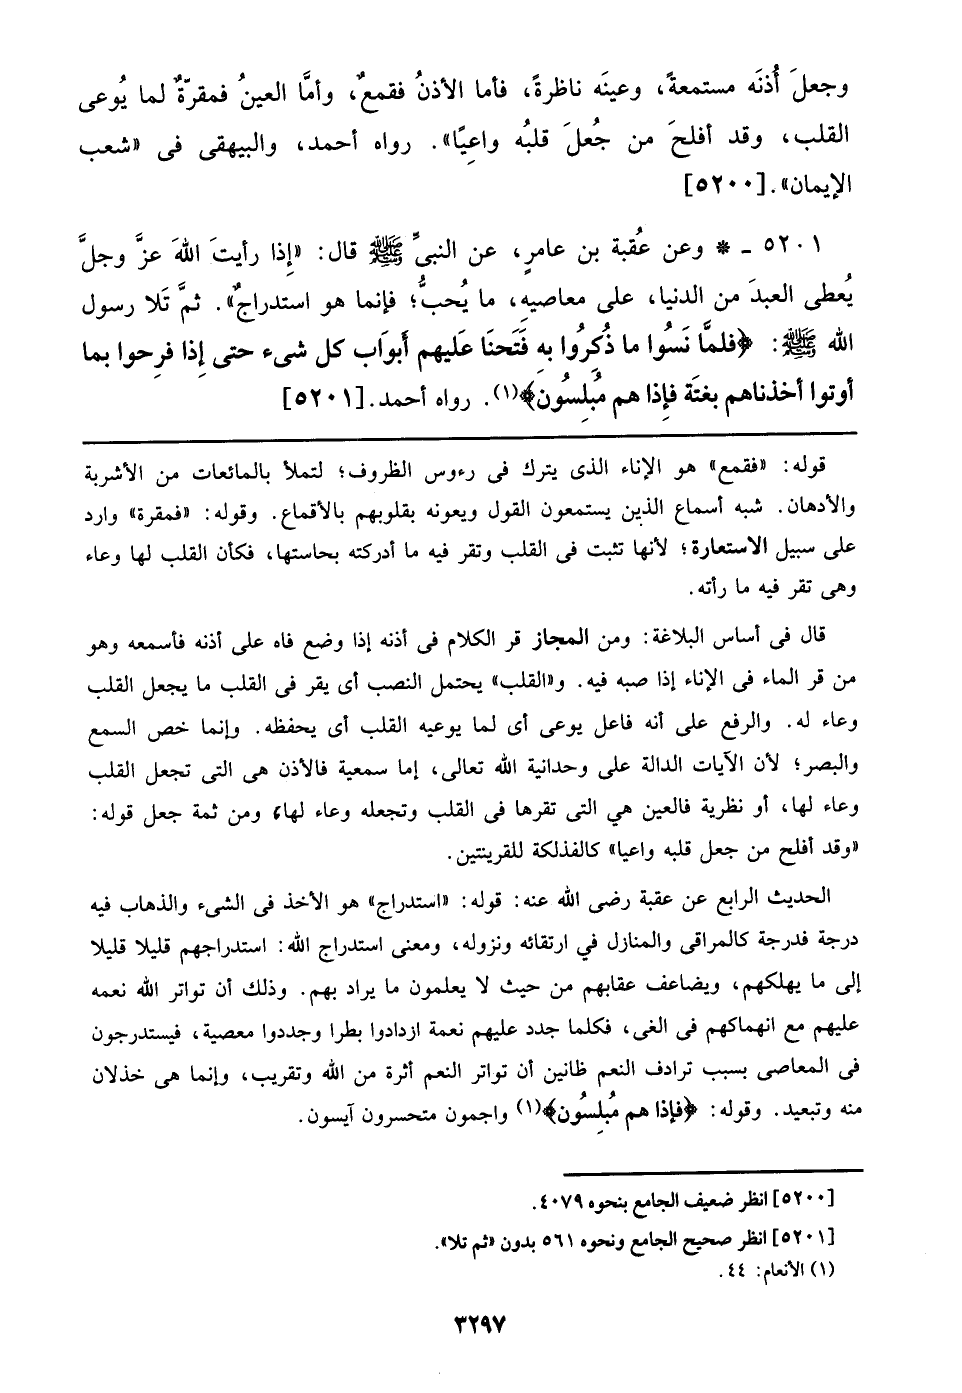 وجعلَ أُذنَه مستمعةً، وعينَه ناظرةً، فأما الأذنُ فقمعٌ، وأمَّا العينُ فمقرّةٌ لما يُوعى
القلب، وقد أفلحَ من جُعلَ قلبُه واعِيًا». رواه أحمد، والبيهقى فى «شعب
الإيمان».[٥٢٠٠]
٥٢٠١ ـ * وعن عُقبة بن عامرٍ، عن النبىِّ ﷺ قال: «إِذا رأيتَ اللهَ عزَّ وجلَّ
يُعطى العبدَ من الدنيا، على معاصيهِ، ما يُحبُّ؛ فإنما هو استدراجٌ». ثمَّ تَلا رسول
الله ﷺ: ﴿فلمَّا نَسُوا ما ذُكِرُوا بهِ فَتَحنَا عَليهم أبوَاب كل شىء حتى إِذا فرِحوا بما
أوتوا أخذناهم بغتَة فإِذا هم مُبلِسُون﴾(١). رواه أحمد.[٥٢٠١]
قوله: «فقمع» هو الإناء الذى يترك فى رءوس الظروف؛ لتملأ بالمائعات من الأشربة
والأدهان. شبه أسماع الذين يستمعون القول ويعونه بقلوبهم بالأقماع. وقوله: «فمقرة» وارد
على سبيل الاستعارة؛ لأنها تثبت فى القلب وتقر فيه ما أدركته بحاستها، فكأن القلب لها وعاء
وهى تقر فيه ما رأته.
قال فى أساس البلاغة: ومن المجاز قر الكلام فى أذنه إذا وضع فاه على أذنه فأسمعه وهو
من قر الماء فى الإناء إذا صبه فيه. و«القلب» يحتمل النصب أى يقر فى القلب ما يجعل القلب
وعاء له. والرفع على أنه فاعل يوعى أى لما يوعيه القلب أى يحفظه. وإنما خص السمع
والبصر؛ لأن الآيات الدالة على وحدانية الله تعالى، إما سمعية فالأذن هى التى تجعل القلب
وعاء لها، أو نظرية فالعين هي التى تقرها فى القلب وتجعله وعاء لها، ومن ثمة جعل قوله:
«وقد أفلح من جعل قلبه واعيا» كالفذلكة للقرينتين.
الحديث الرابع عن عقبة رضى الله عنه: قوله: «استدراج» هو الأخذ فى الشىء والذهاب فيه
درجة فدرجة كالمراقى والمنازل في ارتقائه ونزوله، ومعنى استدراج الله: استدراجهم قليلا قليلا
إلى ما يهلكهم، ويضاعف عقابهم من حيث لا يعلمون ما يراد بهم. وذلك أن تواتر الله نعمه
عليهم مع انهماكهم فى الغى، فكلما جدد عليهم نعمة ازدادوا بطرا وجددوا معصية، فيستدرجون
فى المعاصى بسبب ترادف النعم ظانين أن تواتر النعم أثرة من الله وتقريب، وإنما هى خذلان
منه وتبعيد. وقوله: ﴿فإذا هم مُبلِسُون﴾(١) واجمون متحسرون آيسون.
[٥٢٠٠] انظر ضعيف الجامع بنحوه ٤٠٧٩.
[٥٢٠١] انظر صحيح الجامع ونحوه ٥٦١ بدون «ثم تلا».
(١) الأنعام: ٤٤.
٣٢٩٧